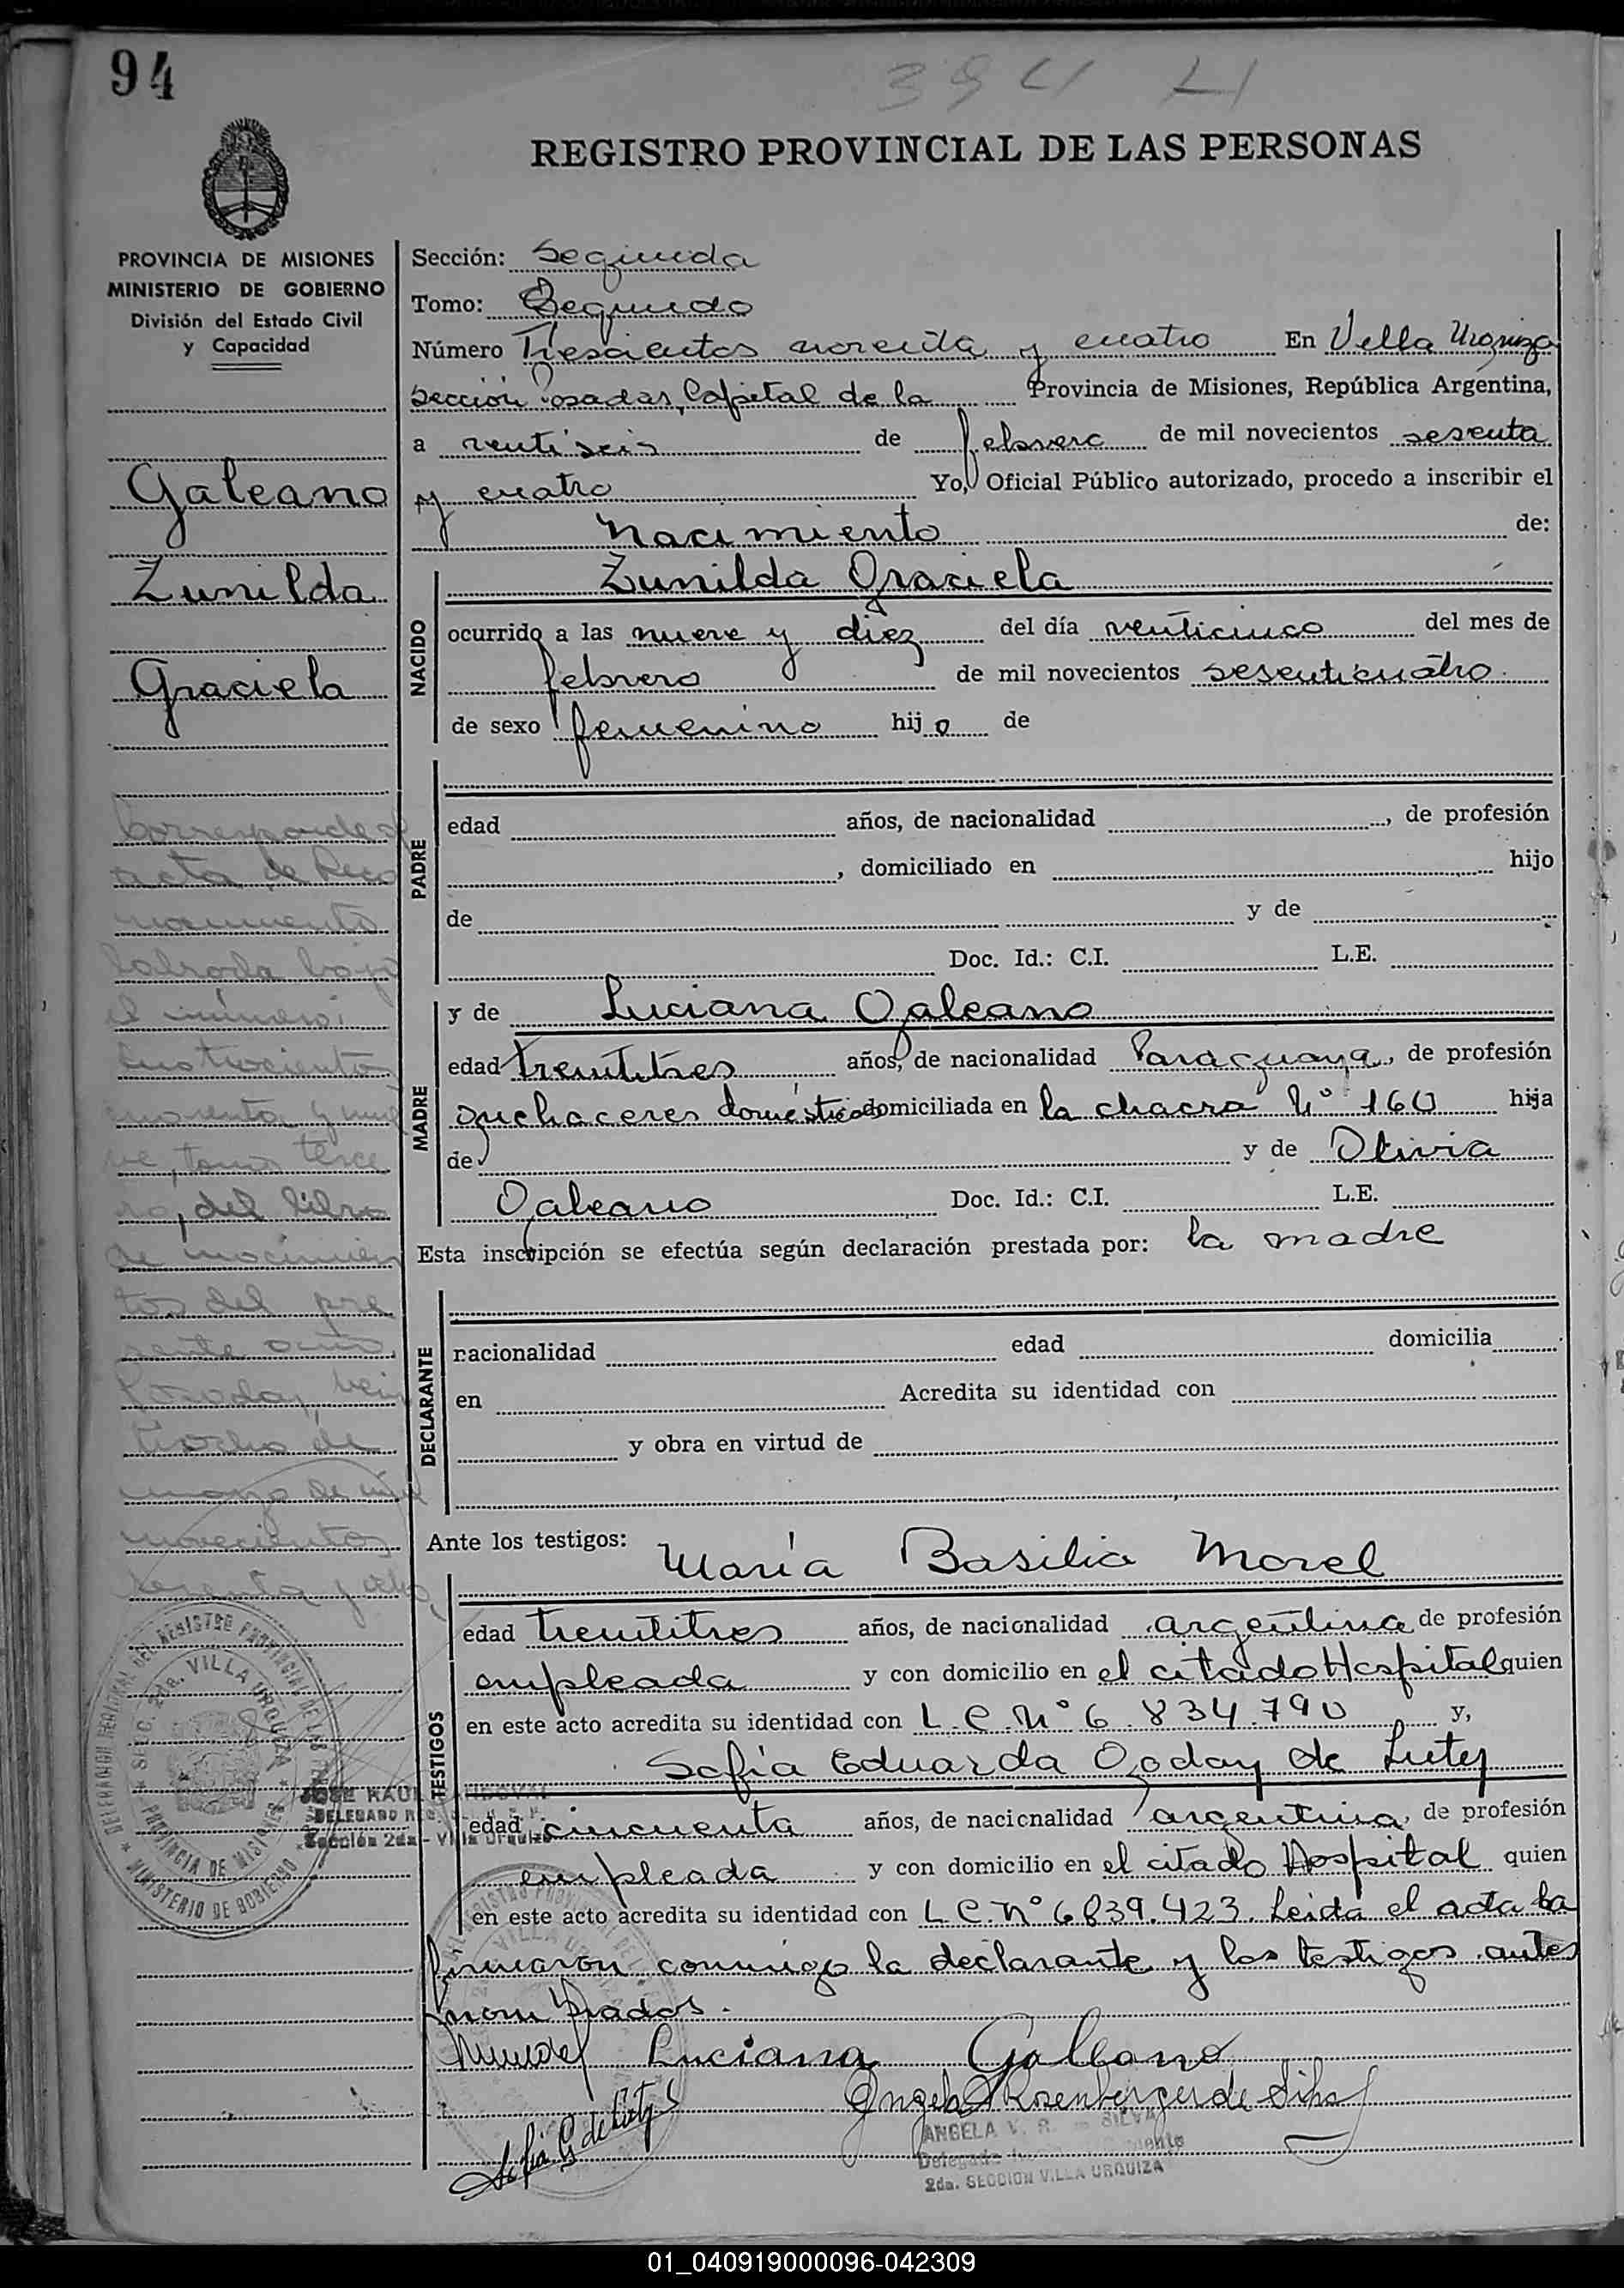 94
394 H
REGISTRO PROVINCIAL DE LAS PERSONAS
PROVINCIA DE MISIONES
MINISTERIO DE GOBIERNO
División del Estado Civil
y Capacidad
Galeano
Zunilda
Graciela
Corresponde
acta de Reco
nocimiento
labrada bajo
el número:
cuatrocientos
noventa y nue
ve, tomo terce
ro, del libro
de nacimien
tos del pre
sente año
Posadas, vein
tiocho de
marzo de mil
novecientos
sesenta y ocho,
Sección: Segunda
Tomo: Segundo
Número Trescientos noventa y cuatro En Villa Urquiza
Sección Posadas, Capital de la Provincia de Misiones, República Argentina,
a ventiseis de febrero de mil novecientos sesenta
y cuatro Yo, Oficial Público autorizado, procedo a inscribir el
Nacimiento de:
NACIDO
Zunilda Graciela
ocurrido a las nueve y diez del día venticinco del mes de
febrero de mil novecientos sesenticuatro.
de sexo femenino hijo de
PADRE
edad años, de nacionalidad , de profesión
, domiciliado en hijo
de y de
Doc. Id.: C.I. L.E.
MADRE
y de Luciana Galeano
edad trentitres años, de nacionalidad Paraguaya, de profesión
quehaceres domésticos domiciliada en la chacra Nº 160 hija
de y de Olivia
Galeano Doc. Id.: C.I. L.E.
Esta inscripción se efectúa según declaración prestada por: la madre
DECLARANTE
nacionalidad edad domicilia
en Acredita su identidad con
y obra en virtud de
Ante los testigos: María Basilia Morel
TESTIGOS
edad trentitres años, de nacionalidad argentina de profesión
empleada y con domicilio en el citado Hospital quien
en este acto acredita su identidad con L.C. Nº 6.834.790 y,
Sofía Eduarda Godoy de Lutz
edad cincuenta años, de nacionalidad argentina, de profesión
empleada y con domicilio en el citado Hospital quien
en este acto acredita su identidad con L.C. Nº 6839.423. Leida el acta la
firmaron conmigo la declarante y los testigos antes
nombrados.
Luciana Galeano
Angela Rosenberger de Silva
Sofía G de Lutz
ANGELA V. R. SILVA
2da. SECCION VILLA URQUIZA
DELEGACION REGIONAL DEL REGISTRO PROVINCIAL DE LAS
SECC. 2da. VILLA URQUIZA
PROVINCIA DE MISIONES
MINISTERIO DE GOBIERNO
JOSE RAUL
DELEGADO
Sección 2da - Villa Urquiza
01_040919000096-042309